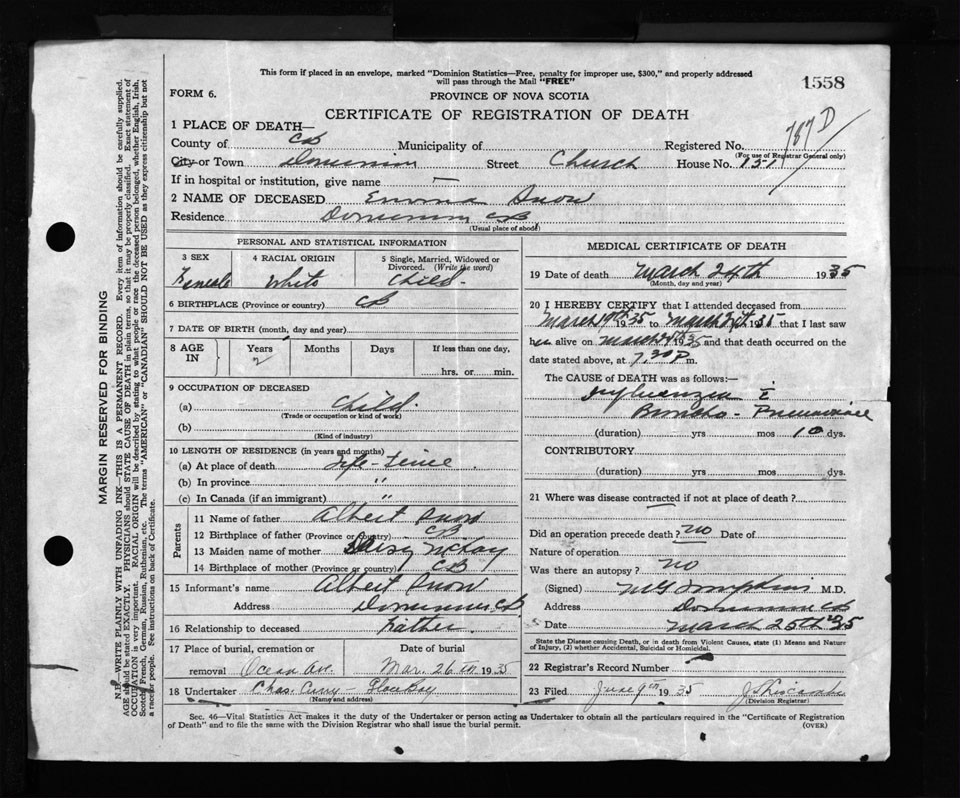 This form if placed in an envelope, marked "Dominion Statistics—Free, penalty for improper use, $300," and properly addressed
will pass through the Mail "FREE"
1558
FORM 6.
PROVINCE OF NOVA SCOTIA
CERTIFICATE OF REGISTRATION OF DEATH
787 D
1 PLACE OF DEATH—
County of CB Municipality of Registered No.
(For use of Registrar General only)
City or Town Dominion Street Church House No. 151
If in hospital or institution, give name —
2 NAME OF DECEASED Emma Snow
Residence Dominion CB
(Usual place of abode)
PERSONAL AND STATISTICAL INFORMATION
3 SEX 4 RACIAL ORIGIN 5 Single, Married, Widowed or
Divorced. (Write the word)
Female White Child.
6 BIRTHPLACE (Province or country) CB
7 DATE OF BIRTH (month, day and year)
8 AGE IN Years Months Days If less than one day,
2 hrs. or min.
9 OCCUPATION OF DECEASED
(a) Child.
(Trade or occupation or kind of work)
(b)
(Kind of industry)
10 LENGTH OF RESIDENCE (in years and months)
(a) At place of death Life-time
(b) In province "
(c) In Canada (if an immigrant) "
Parents
11 Name of father Albert Snow
12 Birthplace of father (Province or Country) CB
13 Maiden name of mother Daisy McKay
14 Birthplace of mother (Province or country) CB
15 Informant's name Albert Snow
Address Dominion CB
16 Relationship to deceased Father
17 Place of burial, cremation or Date of burial
removal Ocean Ave. Mar. 26th 1935
18 Undertaker Chas. Curry – Glace Bay
(Name and address)
MEDICAL CERTIFICATE OF DEATH
19 Date of death March 24th 1935
(Month, day and year)
20 I HEREBY CERTIFY that I attended deceased from
March 19th 1935 to March 24th 1935 that I last saw
her alive on March 24th 1935 and that death occurred on the
date stated above, at 7.30 P m.
The CAUSE of DEATH was as follows:—
Influenza c̄
Broncho-Pneumonia
(duration) yrs mos 10 dys.
CONTRIBUTORY
(duration) yrs mos dys.
21 Where was disease contracted if not at place of death?
Did an operation precede death? no Date of
Nature of operation
Was there an autopsy? no
(Signed) MG Tompkins M.D.
Address Dominion CB
Date March 25th 1935
State the Disease causing Death, or in death from Violent Causes, state (1) Means and Nature
of Injury, (2) whether Accidental, Suicidal or Homicidal.
22 Registrar's Record Number
23 Filed June 9th 1935
(Division Registrar)
Sec. 46—Vital Statistics Act makes it the duty of the Undertaker or person acting as Undertaker to obtain all the particulars required in the "Certificate of Registration
of Death" and to file the same with the Division Registrar who shall issue the burial permit. (OVER)
MARGIN RESERVED FOR BINDING
N.B.—WRITE PLAINLY WITH UNFADING INK—THIS IS A PERMANENT RECORD. Every item of information should be carefully supplied.
AGE should be stated EXACTLY. PHYSICIANS should STATE CAUSE OF DEATH in plain terms, so that it may be properly classified. Exact statement of
OCCUPATION is very important. RACIAL ORIGIN will be described by stating to what people or race the deceased person belonged, whether English, Irish,
Scotch, French, German, Russian, Ruthenian, etc. The terms "AMERICAN" or "CANADIAN" SHOULD NOT BE USED as they express citizenship but not
a race or people. See instructions on back of Certificate.